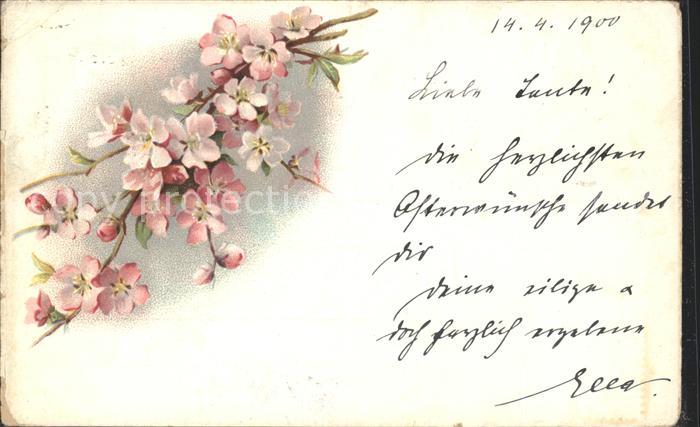 14. 4. 1900
Liebe Tante!
die herzlichsten
Osterwünsche sendet
dir
deine eilige &
doch herzlich ergebene
Ella.